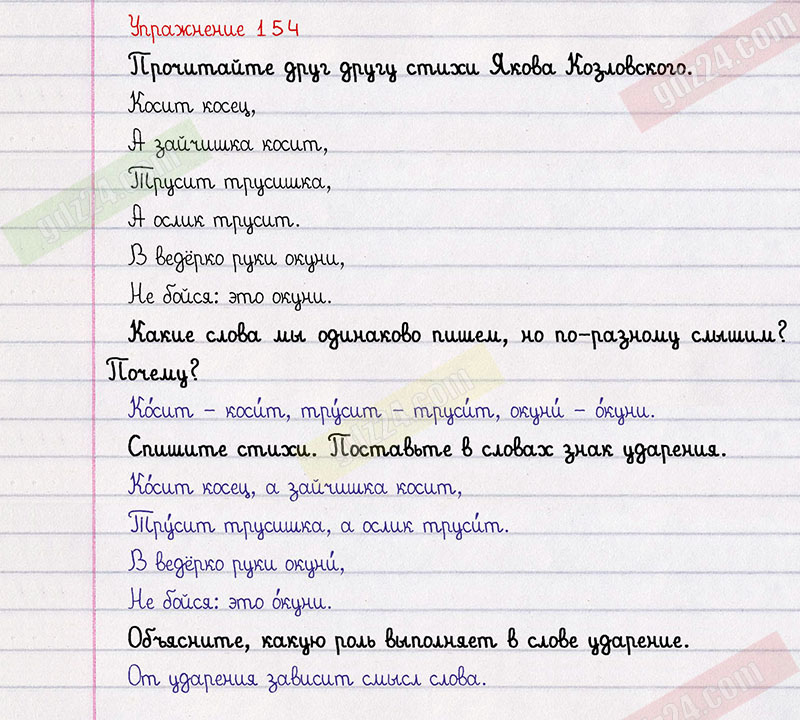 Упражнение 154
Прочитайте друг другу стихи Якова Козловского.
Косит косец,
А зайчишка косит,
Трусит трусишка,
А ослик трусит.
В ведёрко руки окуни,
Не бойся: это окуни.
Какие слова мы одинаково пишем, но по-разному слышим?
Почему?
Ко́сит – коси́т, тру́сит – труси́т, окуни́ – о́куни.
Спишите стихи. Поставьте в словах знак ударения.
Ко́сит косец, а зайчишка косит,
Тру́сит трусишка, а ослик труси́т.
В ведёрко руки окуни́,
Не бойся: это о́куни.
Объясните, какую роль выполняет в слове ударение.
От ударения зависит смысл слова.
ynz24.com
ynz24.com
ynz24.com
ynz24.com